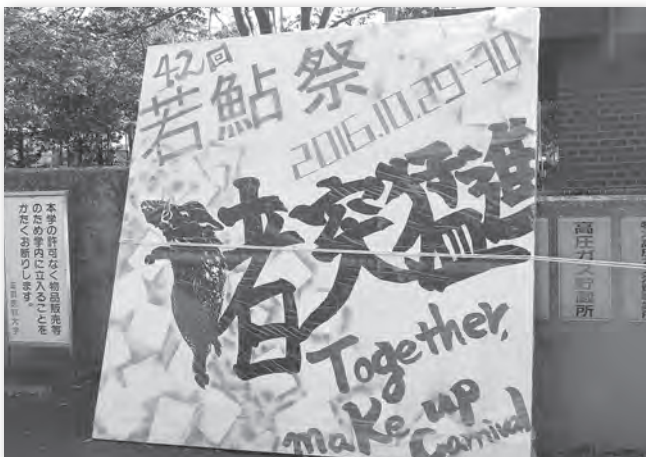 42回
若鮎祭
2016.10.29-30
猪突猛進
Together,
make up
Carnival
本学の許可なく物品販売等
のため学内に立入ることを
かたくお断りします。
高圧ガス貯蔵所